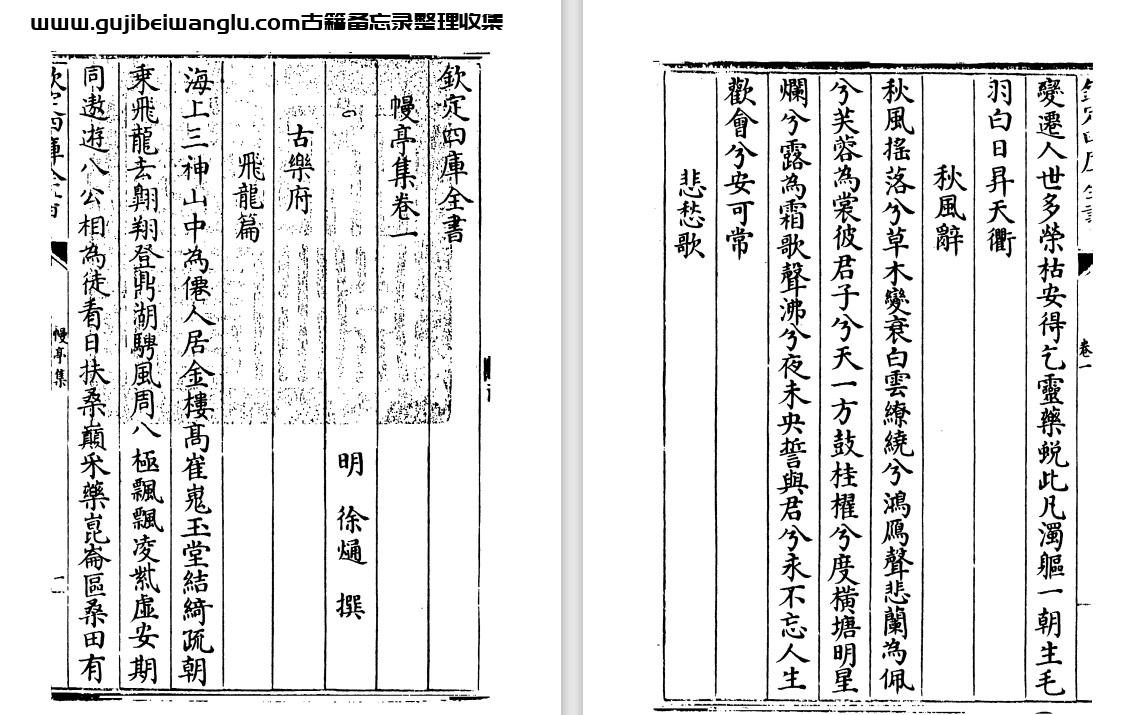 www.gujibeiwanglu.com古籍备忘录整理收集
欽定四庫全書
幔亭集卷一
明 徐熥 撰
古樂府
飛龍篇
海上三神山中為僊人居金樓髙崔嵬玉堂結綺疏朝
乘飛龍去翺翔登鼎湖騁風周八極飄飄凌紫虛安期
同遨遊八公相為徒看日扶桑巔采藥崑崙區桑田有
欽定四庫全書
幔亭集
一
變遷人世多榮枯安得乞靈藥蛻此凡濁軀一朝生毛
羽白日昇天衢
秋風辭
秋風搖落兮草木變衰白雲繚繞兮鴻鴈聲悲蘭為佩
兮芙蓉為裳彼君子兮天一方鼓桂櫂兮度橫塘明星
爛兮露為霜歌聲沸兮夜未央誓與君兮永不忘人生
歡會兮安可常
悲愁歌
欽定四庫全書
卷一